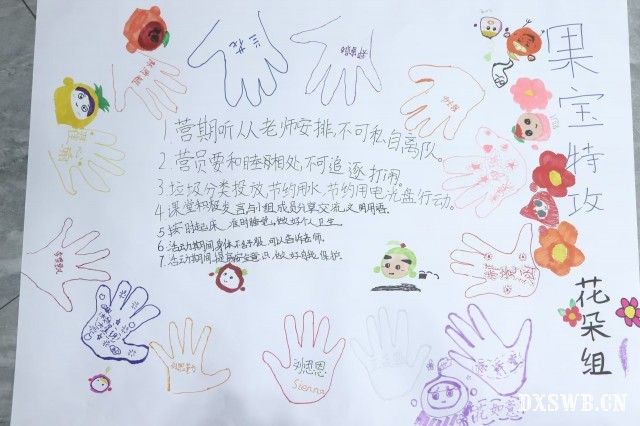 果宝特攻
花朵组
1.营期听从老师安排,不可私自离队。
2.营员要和睦相处,不可追逐打闹。
3.垃圾分类投放,节约用水,节约用电,光盘行动。
4.课堂积极发言与小组成员分享交流,文明用语。
5.按时起床,准时睡觉,做好个人卫生。
6.活动期间身体不舒服,可以告诉老师。
7.活动期间提高安全意识,做好自我保护。
刘思恩
Sienna
DXSWB.CN